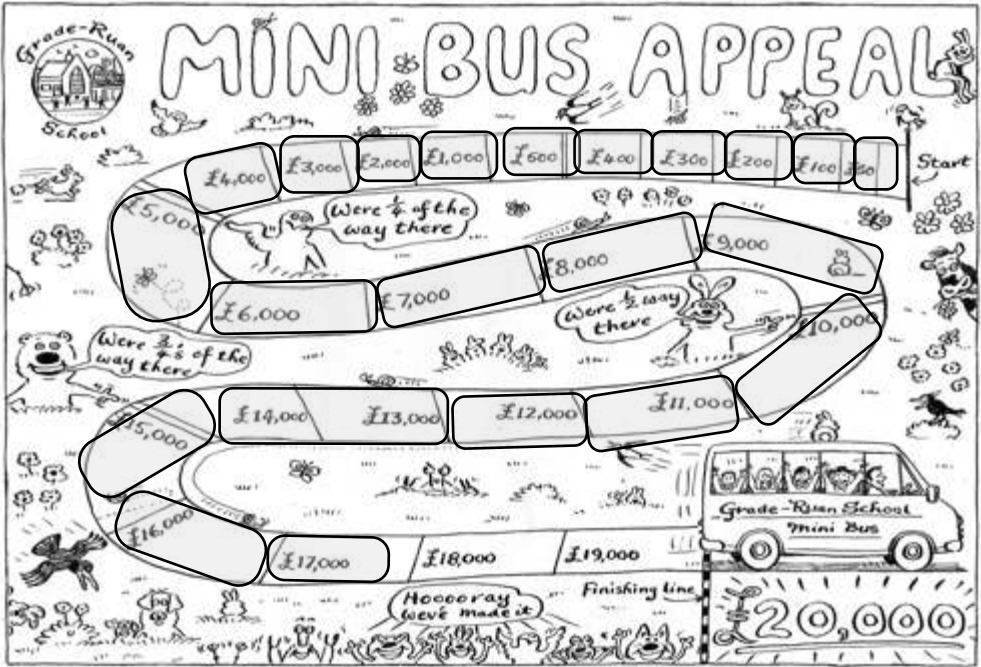 Grade-Ruan
School
MINI BUS APPEAL
Start
£100
£200
£300
£400
£600
£1,000
£2,000
£3,000
£4,000
£5,000
Were ¼ of the
way there
£6,000
£7,000
£8,000
£9,000
Were ½ way
there
£10,000
£11,000
£12,000
£13,000
£14,000
Were ¾'s of the
way there
£15,000
£16,000
£17,000
£18,000
£19,000
Grade-Ruan School
Mini Bus
Finishing line
Hooooray
weve made it
£20,000